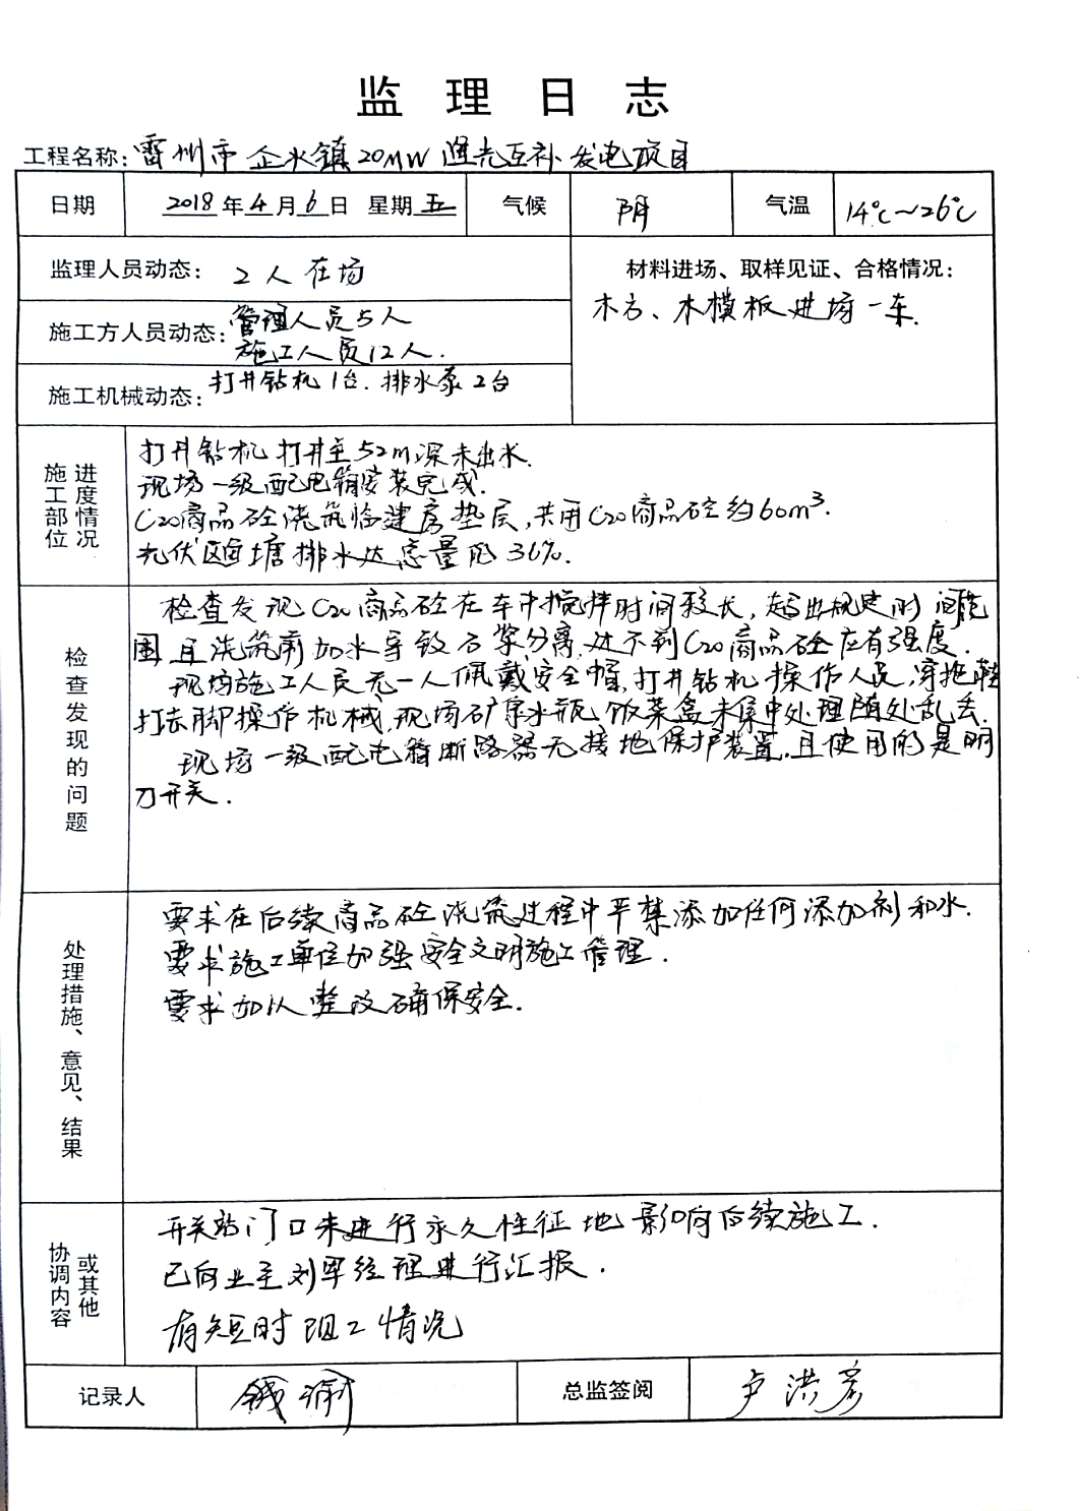 监理日志
工程名称：雷州市企水镇20MW渔光互补发电项目
日期 2018年4月6日 星期五 气候 阴 气温 14℃～26℃
监理人员动态： 2人在场
材料进场、取样见证、合格情况：
木方、木模板进场一车.
施工方人员动态： 管理人员5人
施工人员12人.
施工机械动态： 打井钻机1台.排水泵2台
施工部位进度情况
打井钻机打井至52m深未出水.
现场一级配电箱安装完成.
C20商品砼浇筑临建房垫层,共用C20商品砼约60m³.
光伏区鱼塘排水达总量的36%.
检查发现的问题
检查发现C20商品砼在车中搅拌时间较长,超出规定时间范
围且浇筑前加水导致石浆分离,达不到C20商品砼应有强度.
现场施工人员无一人佩戴安全帽,打井钻机操作人员,穿拖鞋
打赤脚操作机械.现场矿泉水瓶饭菜盒未集中处理随处乱丢.
现场一级配电箱断路器无接地保护装置.且使用的是明
刀开关.
处理措施、意见、结果
要求在后续商品砼浇筑过程中严禁添加任何添加剂和水.
要求施工单位加强安全文明施工管理.
要求加以整改确保安全.
协调内容或其他
开关站门口未进行永久性征地影响后续施工.
已向业主刘军经理进行汇报.
有短时阻工情况
记录人 钱 总监签阅 卢洪彦